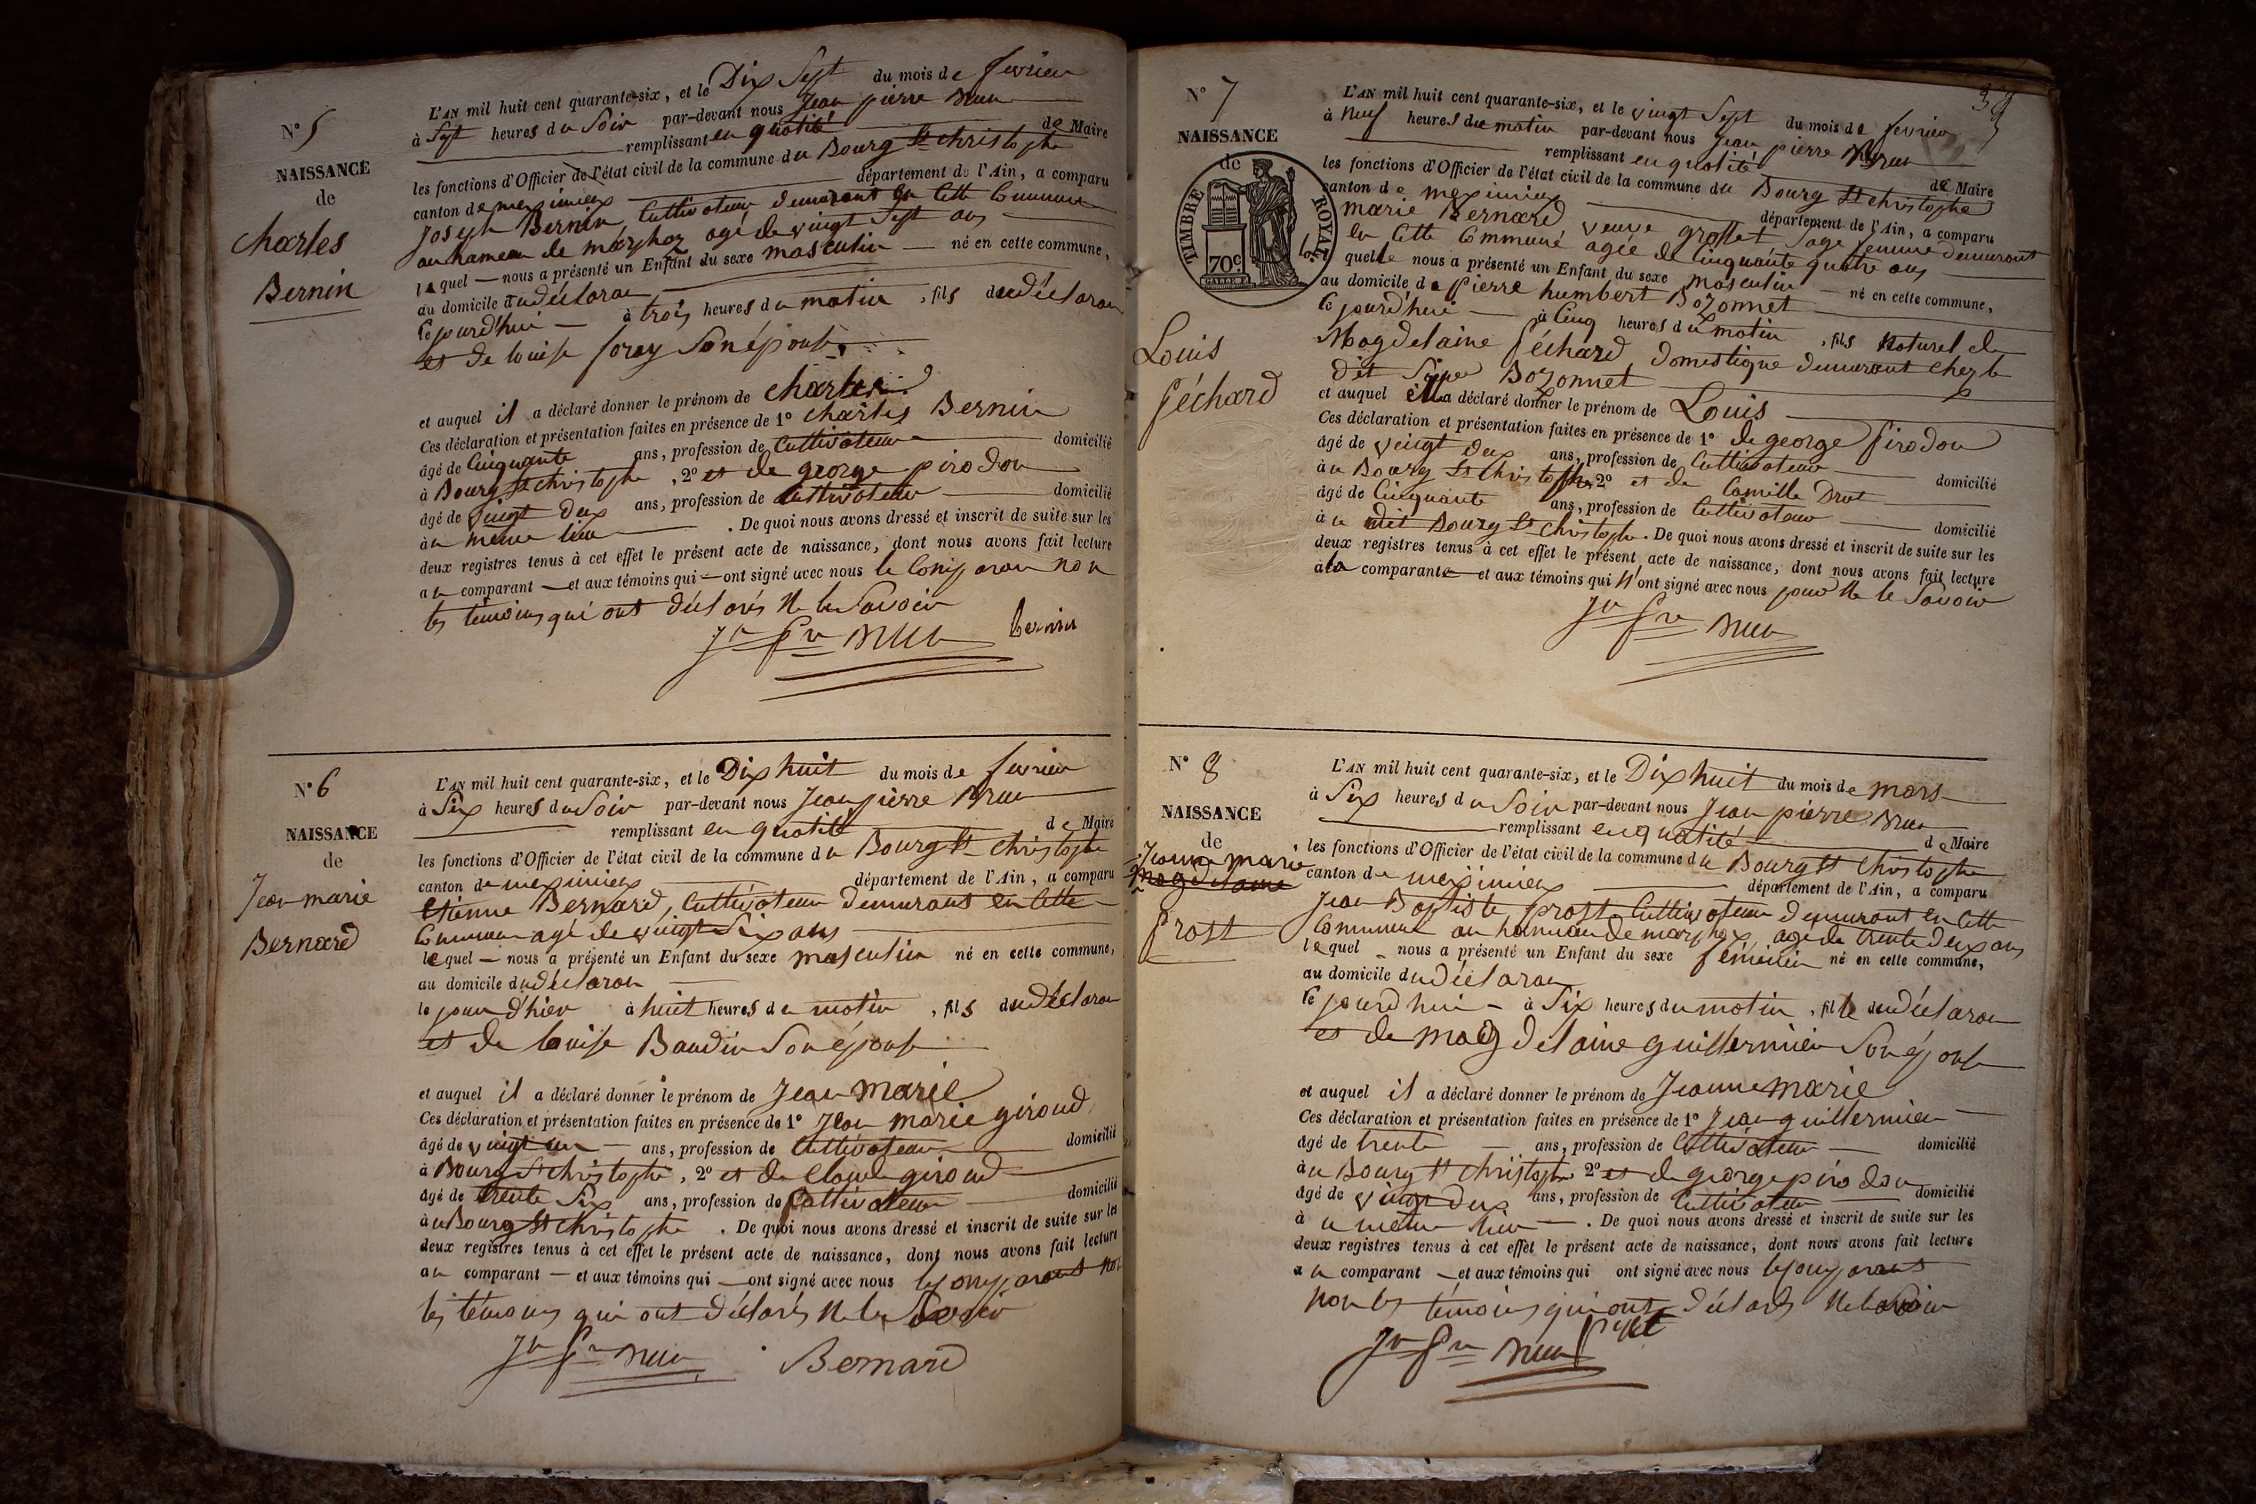 N° 5
NAISSANCE
de
Charles
Bernin
L'AN mil huit cent quarante-six, et le Dix Sept du mois de fevrier
à Sept heures du Soir par-devant nous Jean pierre Brun
remplissant en qualité de Maire
les fonctions d'Officier de l'état civil de la commune du Bourg St christophe
canton de meximieux département de l'Ain, a comparu
Joseph Bernin, Cultivateur demeurant en Cette Commune
au hameau de marphoz agé de vingt Sept ans
lequel nous a présenté un Enfant du sexe masculin né en cette commune,
au domicile du déclaran
cejourd'hui à trois heures du matin, fils du déclaran
et de louise foray Son épouse
et auquel il a déclaré donner le prénom de charles
Ces déclaration et présentation faites en présence de 1° charles Bernin
âgé de Cinquante ans, profession de Cultivateur domicilié
à Bourg St christophe, 2° et de george pirodon
âgé de vingt deux ans, profession de Cultivateur domicilié
au même lieu. De quoi nous avons dressé et inscrit de suite sur les
deux registres tenus à cet effet le présent acte de naissance, dont nous avons fait lecture
au comparant et aux témoins qui ont signé avec nous le Comparan non
les témoins qui ont déclarés Ne le Savoir
Jn pre Brun Bernin
N° 6
NAISSANCE
de
Jean marie
Bernard
L'AN mil huit cent quarante-six, et le Dix huit du mois de fevrier
à Six heures du Soir par-devant nous Jean pierre Brun
remplissant en qualité de Maire
les fonctions d'Officier de l'état civil de la commune du Bourg St christophe
canton de meximieux département de l'Ain, a comparu
Etienne Bernard, Cultivateur demeurant en Cette
Commune agé de vingt Six ans
lequel nous a présenté un Enfant du sexe masculin né en cette commune,
au domicile du déclaran
le jour d'hier à huit heures du matin, fils du déclaran
et de louise Baudin Son épouse
et auquel il a déclaré donner le prénom de Jean marie
Ces déclaration et présentation faites en présence de 1° Jean marie giroud
âgé de vingt un ans, profession de Cultivateur domicilié
à Bourg St christophe, 2° et de Claude giroud
âgé de trente Six ans, profession de Cultivateur domicilié
au Bourg St christophe. De quoi nous avons dressé et inscrit de suite sur les
deux registres tenus à cet effet le présent acte de naissance, dont nous avons fait lecture
au comparant et aux témoins qui ont signé avec nous le Comparant non
les témoins qui ont déclarés Ne le Savoir
Jn pre Brun Bernard
N° 7
NAISSANCE
de
TIMBRE ROYAL
70c
Louis
féchard
L'AN mil huit cent quarante-six, et le vingt Sept du mois de fevrier
à Neuf heures du matin par-devant nous Jean pierre Brun
remplissant en qualité de Maire
les fonctions d'Officier de l'état civil de la commune du Bourg St christophe
canton de meximieux département de l'Ain, a comparu
marie Bernard veuve grosset Sage femme demeurant
en Cette Commune agée de Cinquante quatre ans
quelle nous a présenté un Enfant du sexe masculin né en cette commune,
au domicile de pierre humbert Bozonnet
cejourd'hui à Cinq heures du matin, fils Naturel de
Magdelaine féchard domestique demeurant chez le
dit Bozonnet
et auquel elle a déclaré donner le prénom de Louis
Ces déclaration et présentation faites en présence de 1° de george pirodon
âgé de vingt deux ans, profession de Cultivateur domicilié
au Bourg St christophe 2° et de Camille Brot
âgé de Cinquante ans, profession de Cultivateur domicilié
au dit Bourg St christophe. De quoi nous avons dressé et inscrit de suite sur les
deux registres tenus à cet effet le présent acte de naissance, dont nous avons fait lecture
à la comparante et aux témoins qui N'ont signé avec nous pour Ne le Savoir
Jn pre Brun
N° 8
NAISSANCE
de
Jeanne marie
Magdelaine
prost
L'AN mil huit cent quarante-six, et le Dix huit du mois de mars
à Six heures du Soir par-devant nous Jean pierre Brun
remplissant en qualité de Maire
les fonctions d'Officier de l'état civil de la commune du Bourg St christophe
canton de meximieux département de l'Ain, a comparu
Jean Baptiste prost Cultivateur demeurant en Cette
Commune au hameau de marphoz agé de trente deux ans
lequel nous a présenté un Enfant du sexe féminin né en cette commune,
au domicile du déclaran
cejourd'hui à Six heures du matin, fille du déclaran
et de magdelaine guillermin Son épouse
et auquel il a déclaré donner le prénom de Jeanne marie
Ces déclaration et présentation faites en présence de 1° Jean guillermin
âgé de trente ans, profession de Cultivateur domicilié
au Bourg St christophe 2° et de george pirodon
âgé de vingt deux ans, profession de Cultivateur domicilié
au même lieu. De quoi nous avons dressé et inscrit de suite sur les
deux registres tenus à cet effet le présent acte de naissance, dont nous avons fait lecture
au comparant et aux témoins qui ont signé avec nous le Comparant
non les témoins qui ont déclarés Ne le Savoir
Jn pre Brun